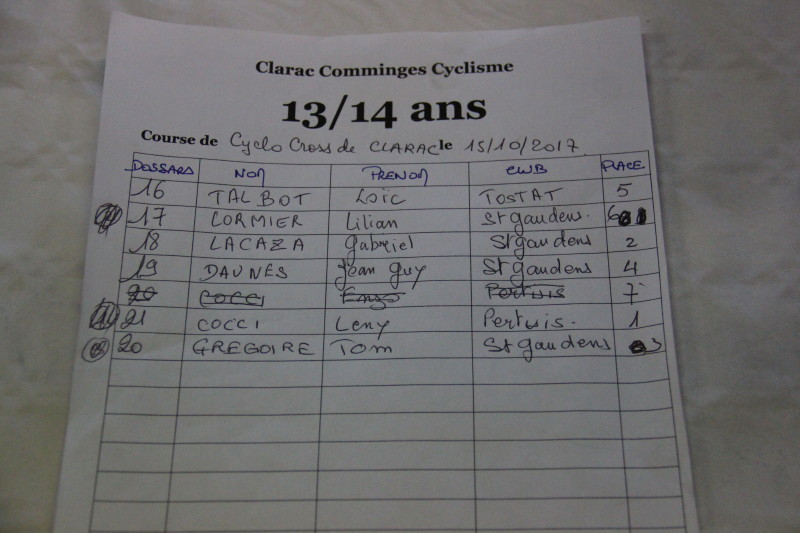 Clarac Comminges Cyclisme
13/14 ans
Course de Cyclo Cross de CLARAC le 15/10/2017
DOSSARD NOM PRENOM CLUB PLACE
16 TALBOT Loïc TOSTAT 5
17 CORMIER Lilian St gaudens. 6
18 LACAZA Gabriel St gaudens 2
19 DAUNES Jean Guy St gaudens 4
20 COCCI Enzo Pertuis 7
21 COCCI Leny Pertuis. 1
20 GREGOIRE Tom St gaudens 3